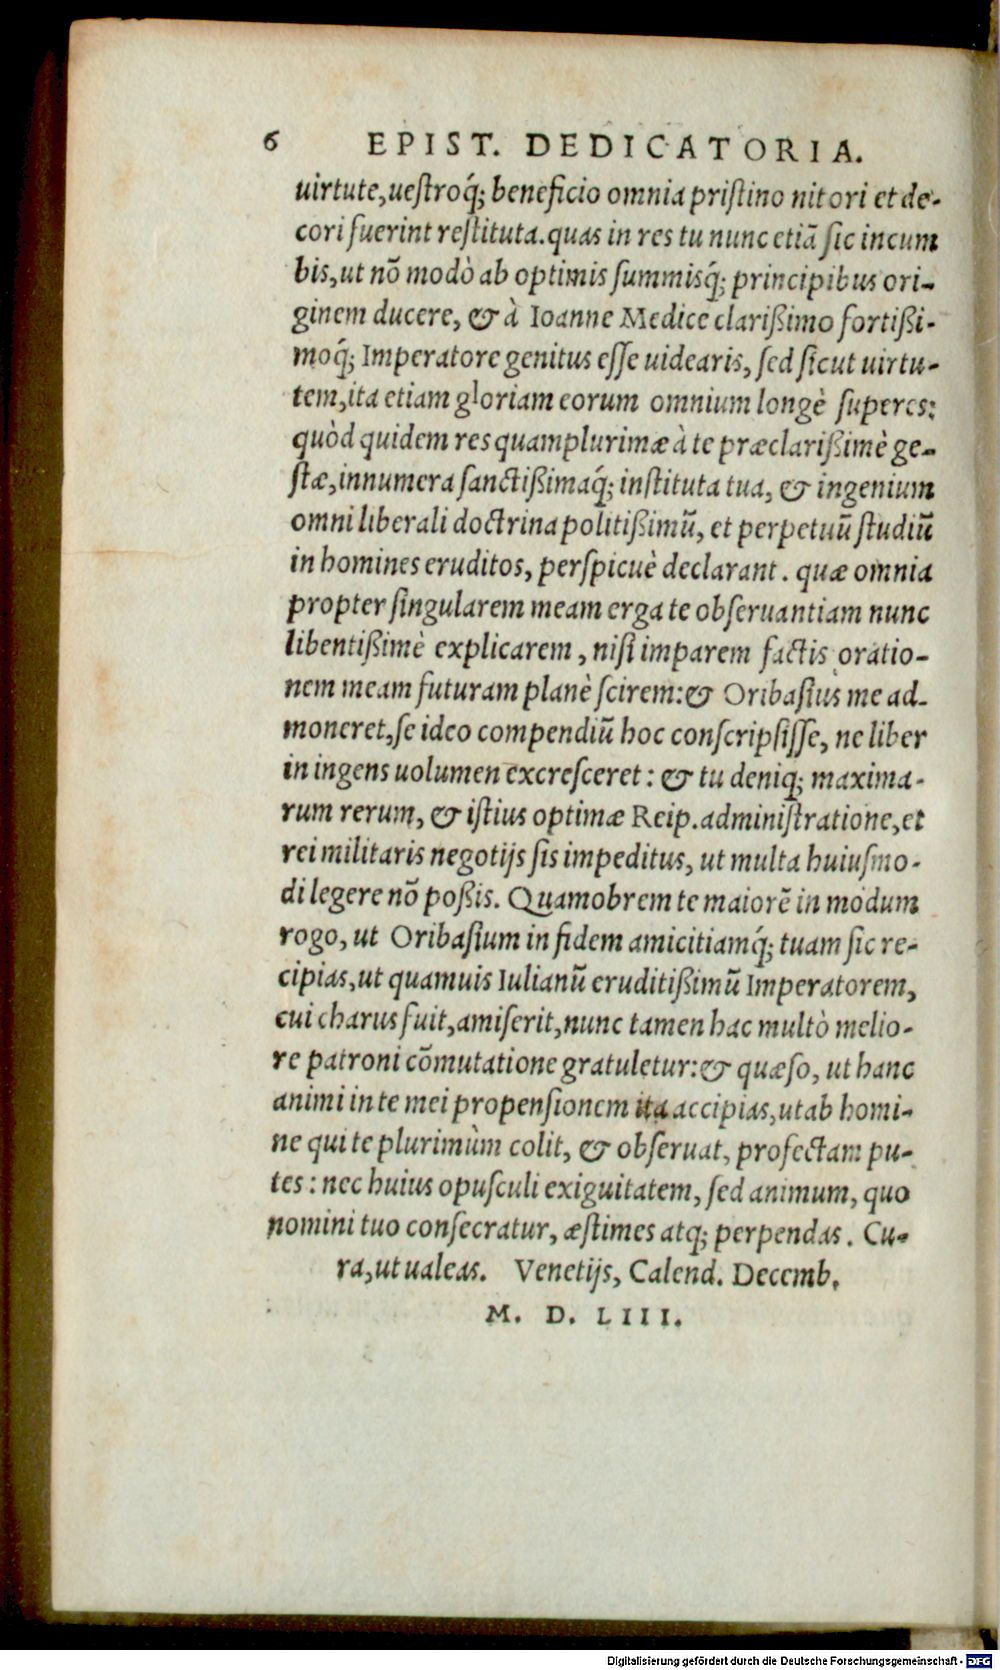 6 EPIST. DEDICATORIA.
uirtute, uestroq́; beneficio omnia pristino nitori et de-
cori fuerint restituta. quas in res tu nunc etiã sic incum
bis, ut nõ modò ab optimis summisq́; principibus ori-
ginem ducere, & à Ioanne Medice clarißimo fortißi-
moq́; Imperatore genitus esse uidearis, sed sicut uirtu-
tem, ita etiam gloriam eorum omnium longè superes:
quòd quidem res quamplurimæ à te præclarißimè ge-
stæ, innumera sanctißimaq́; instituta tua, & ingenium
omni liberali doctrina politißimũ, et perpetuũ studiũ
in homines eruditos, perspicuè declarant. quæ omnia
propter singularem meam erga te obseruantiam nunc
libentißimè explicarem, nisi imparem factis oratio-
nem meam futuram planè scirem: & Oribasius me ad-
moneret, se ideo compendiũ hoc conscripsisse, ne liber
in ingens uolumen excresceret: & tu deniq; maxima-
rum rerum, & istius optimæ Reip. administratione, et
rei militaris negotijs sis impeditus, ut multa huiusmo-
di legere nõ poßis. Quamobrem te maiorẽ in modum
rogo, ut Oribasium in fidem amicitiamq́; tuam sic re-
cipias, ut quamuis Iulianũ eruditißimũ Imperatorem,
cui charus fuit, amiserit, nunc tamen hac multò melio-
re patroni cõmutatione gratuletur: & quæso, ut hanc
animi in te mei propensionem ita accipias, ut ab homi-
ne qui te plurimùm colit, & obseruat, profectam pu-
tes: nec huius opusculi exiguitatem, sed animum, quo
nomini tuo consecratur, æstimes atq; perpendas. Cu-
ra, ut ualeas. Venetijs, Calend. Decemb.
M. D. LIII.
Digitalisierung gefördert durch die Deutsche Forschungsgemeinschaft - DFG